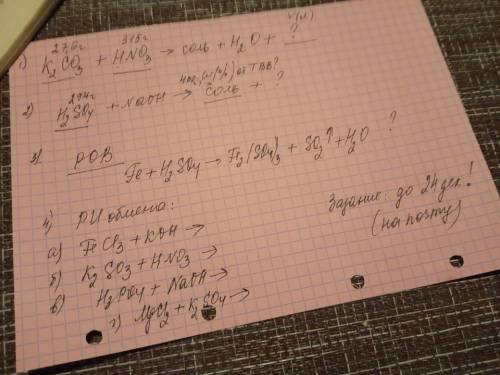 27,6г 315г V(л)
1) K₂CO₃ + HNO₃ → соль + H₂O + ?
294г
2) H₂SO₄ + NaOH → соль + ?
3) РОВ
Fe + H₂SO₄ → Fe₂(SO₄)₃ + SO₂↑ + H₂O ?
4) РИ обмена:
а) FeCl₃ + KOH →
б) K₂SO₃ + HNO₃ →
в) H₃PO₄ + NaOH →
г) MgCl₂ + K₂SO₄ →
Задание: до 24 дек.!
(на почту)